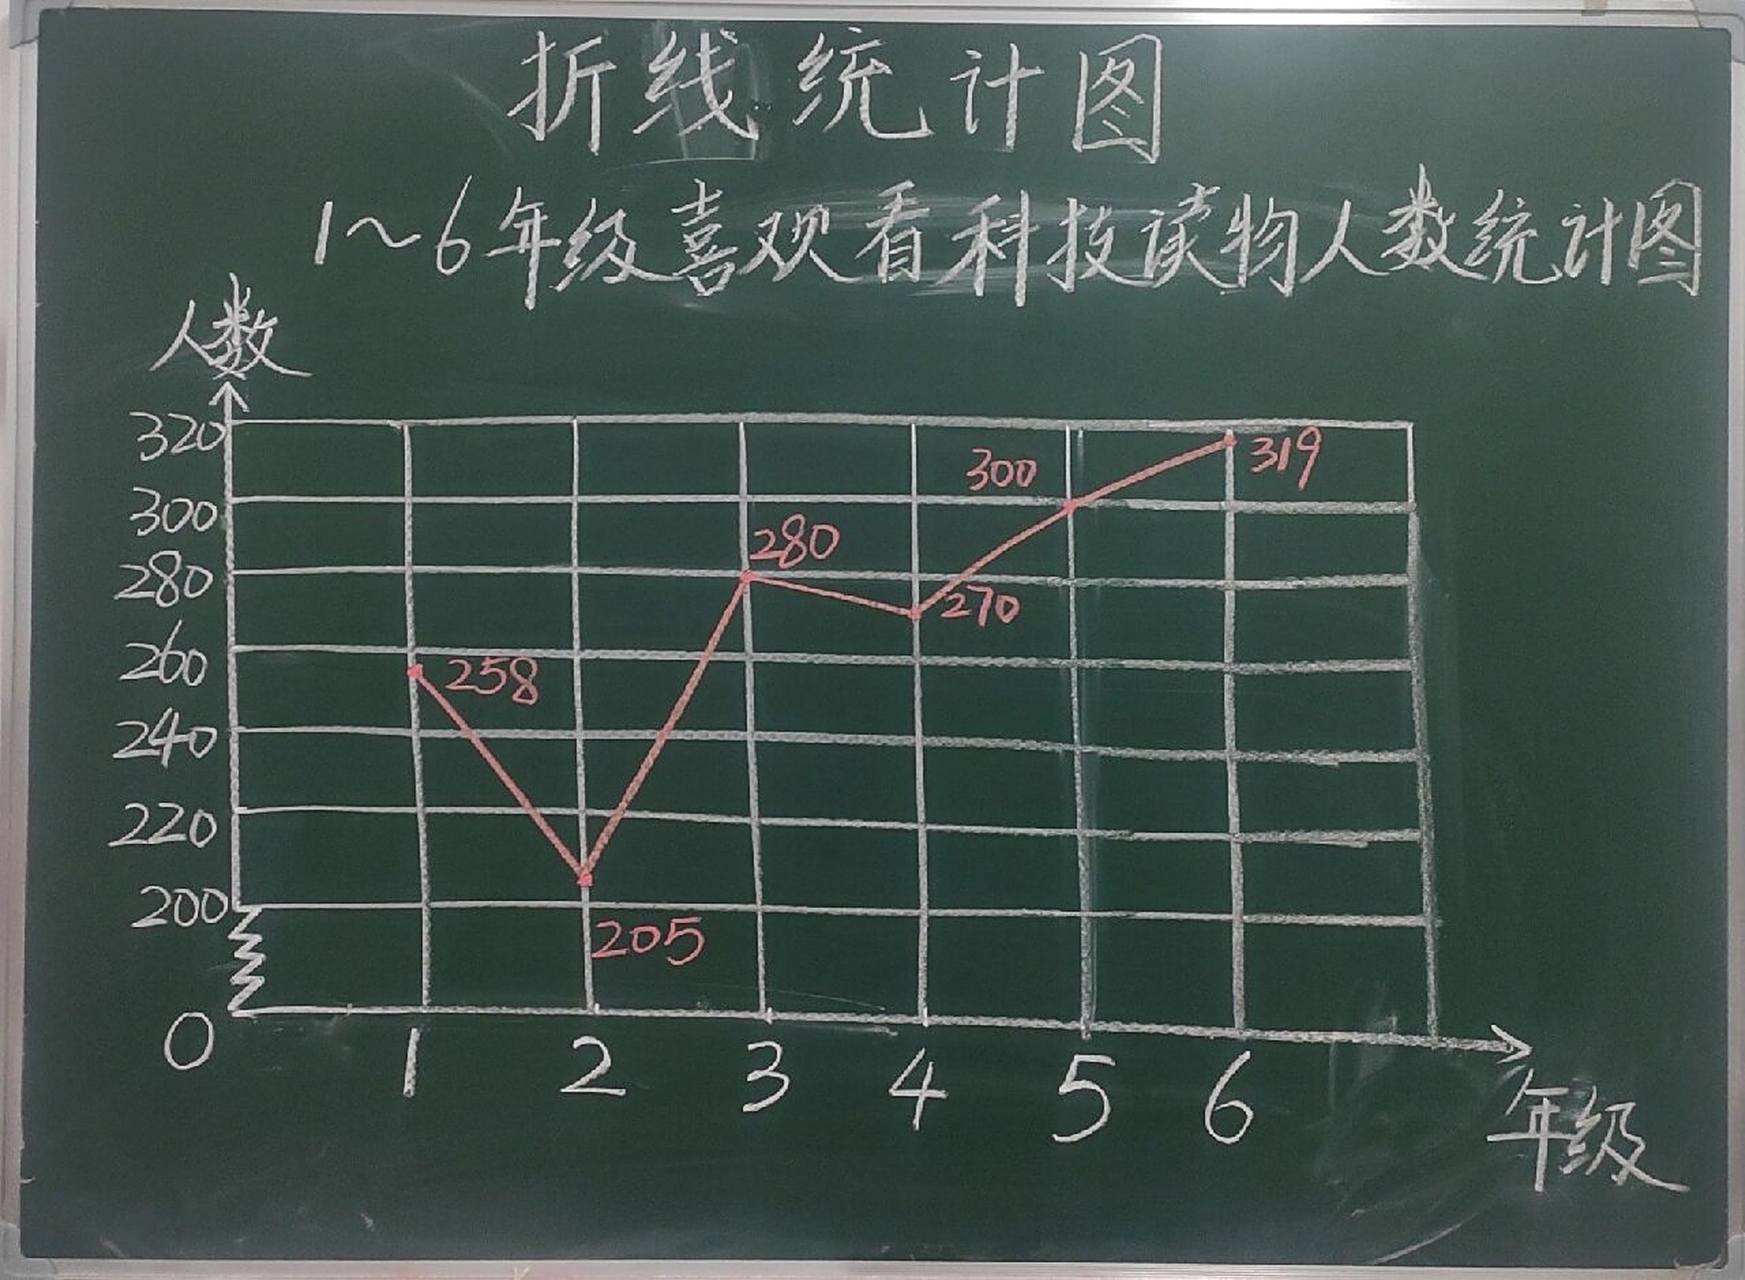 折线统计图
1~6年级喜观看科技读物人数统计图
人数
320
300
280
260
240
220
200
0
258
205
280
270
300
319
1 2 3 4 5 6
年级